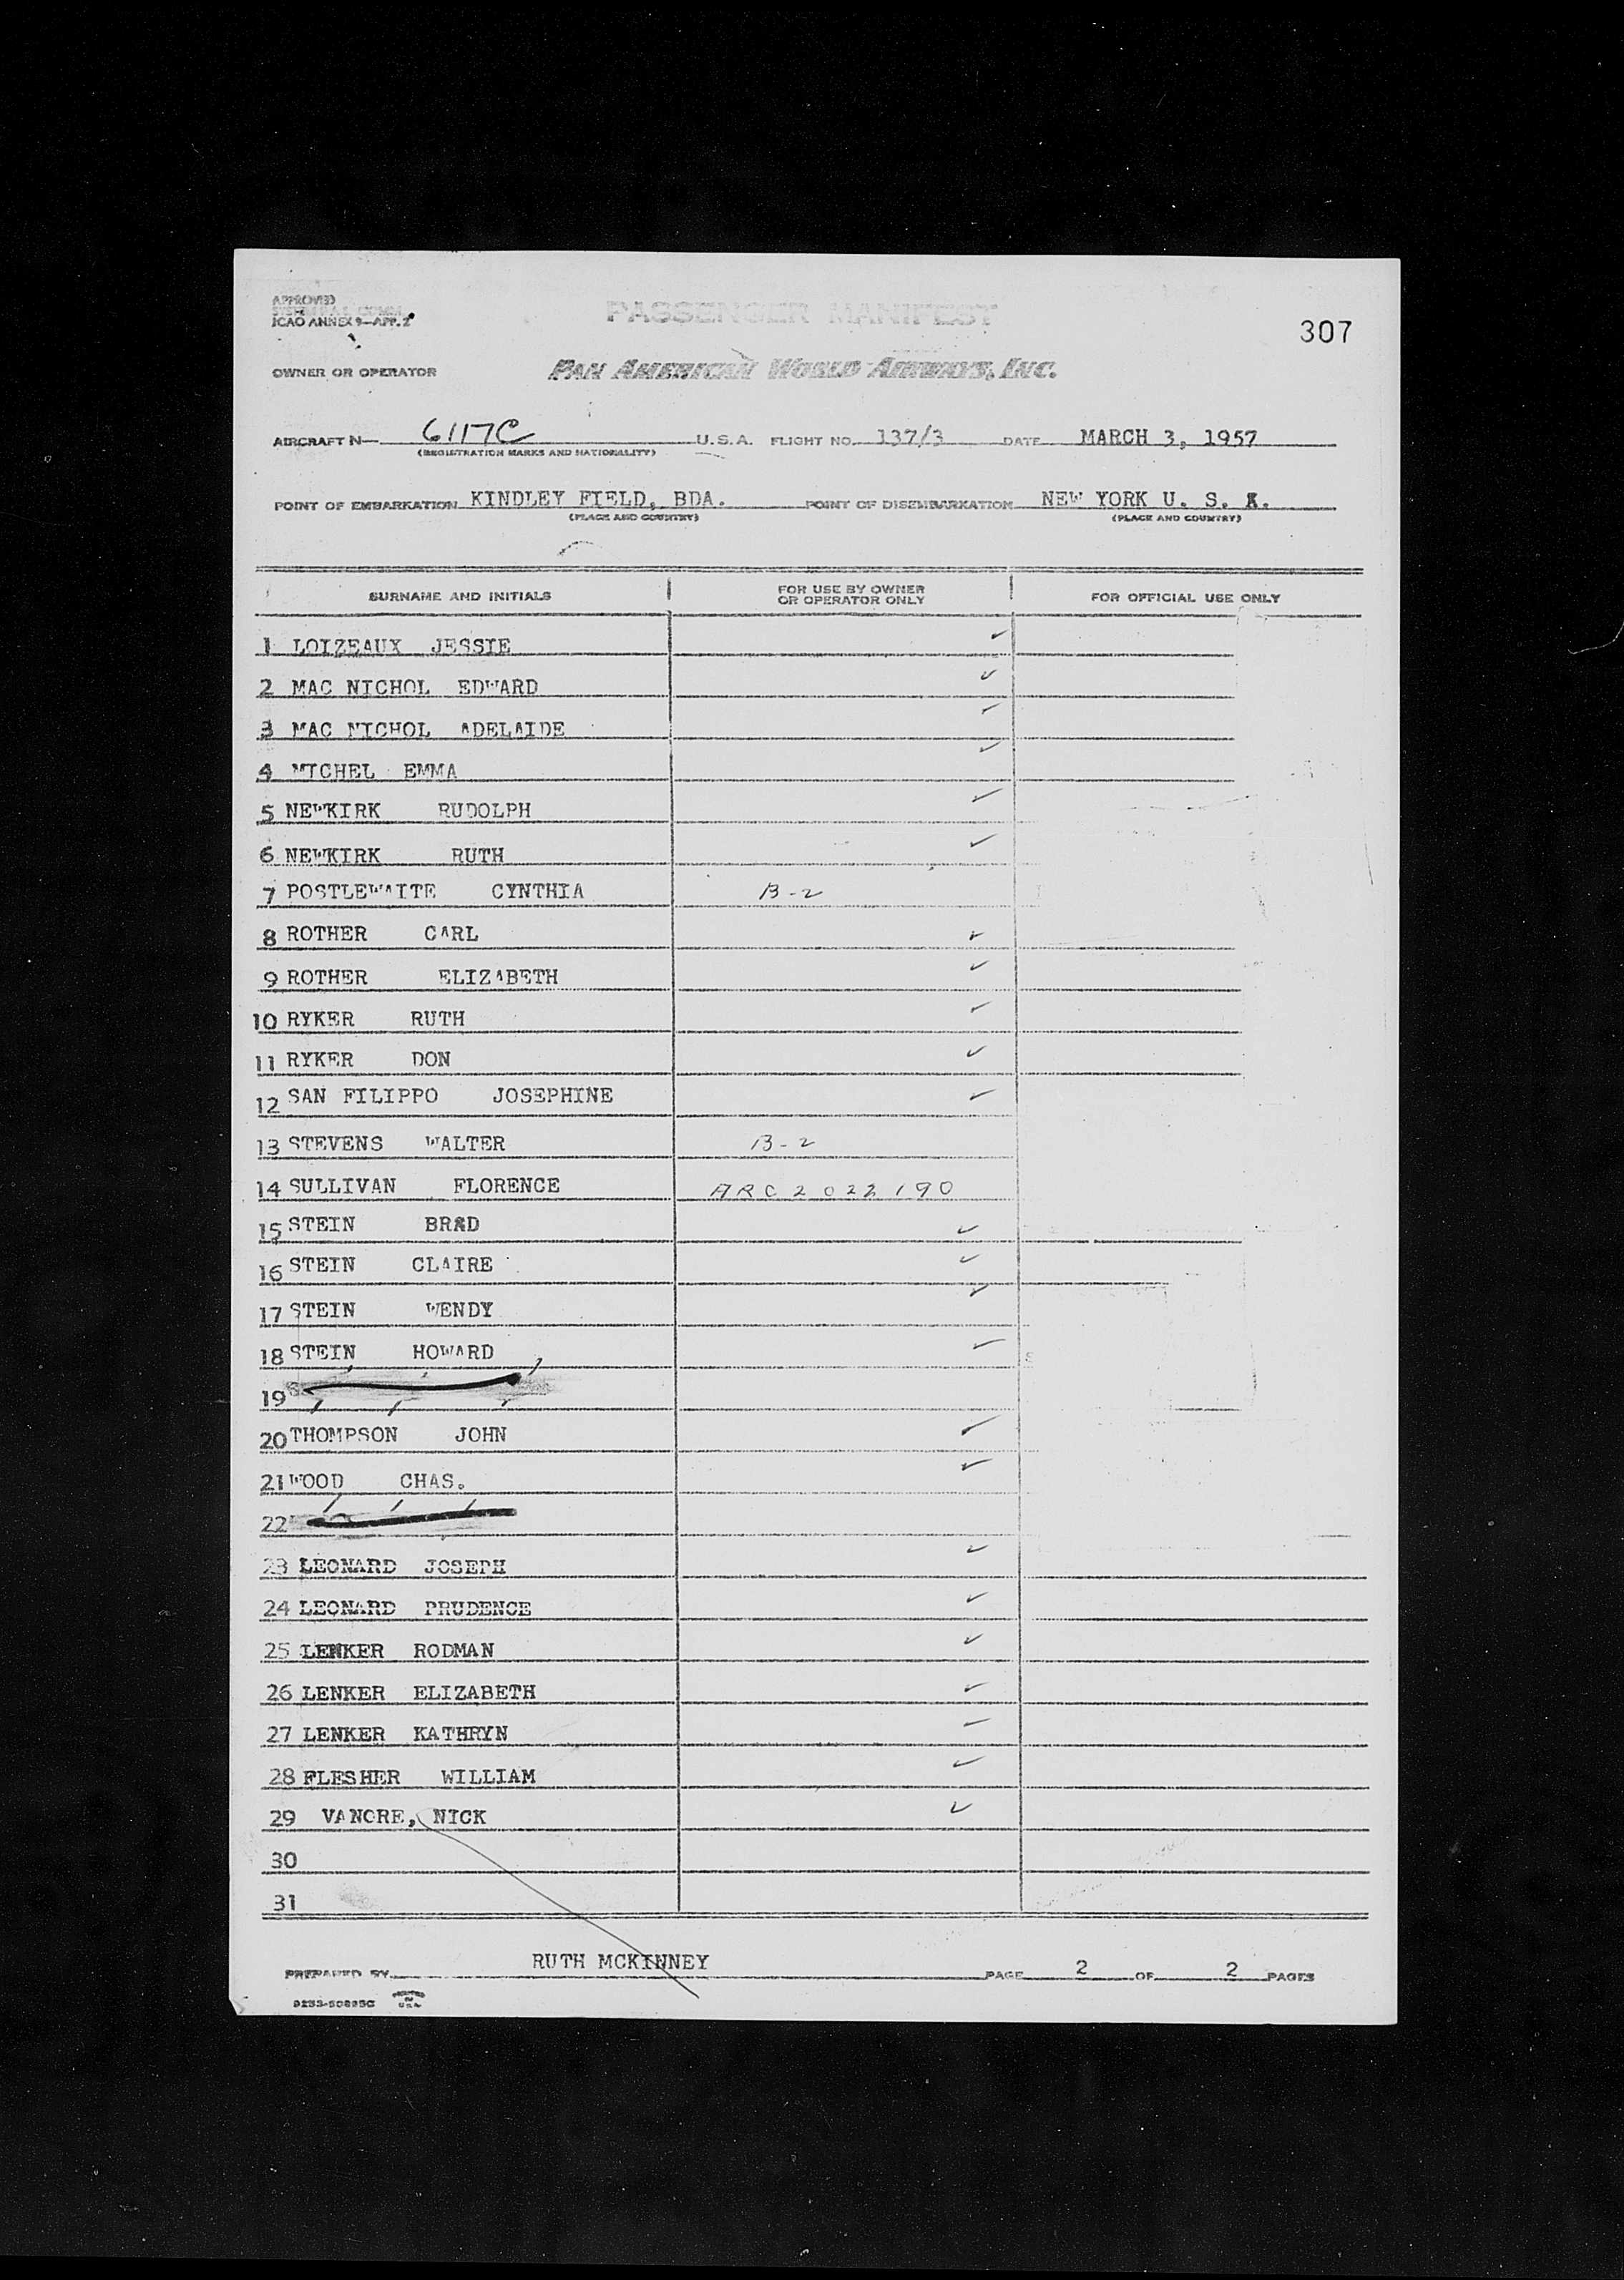 APPROVED
ICAO ANNEX 9—APP. 2
PASSENGER MANIFEST
307
OWNER OR OPERATOR PAN AMERICAN WORLD AIRWAYS, INC.
AIRCRAFT N— 6117C U.S.A. FLIGHT NO. 137/3 DATE MARCH 3, 1957
(REGISTRATION MARKS AND NATIONALITY)
POINT OF EMBARKATION KINDLEY FIELD, BDA. POINT OF DISEMBARKATION NEW YORK U. S. A.
(PLACE AND COUNTRY) (PLACE AND COUNTRY)
SURNAME AND INITIALS FOR USE BY OWNER OR OPERATOR ONLY FOR OFFICIAL USE ONLY
1 LOIZEAUX JESSIE ✓
2 MAC NICHOL EDWARD ✓
3 MAC NICHOL ADELAIDE ✓
4 MICHEL EMMA ✓
5 NEWKIRK RUDOLPH ✓
6 NEWKIRK RUTH ✓
7 POSTLEWAITE CYNTHIA B-2
8 ROTHER CARL ✓
9 ROTHER ELIZABETH ✓
10 RYKER RUTH ✓
11 RYKER DON ✓
12 SAN FILIPPO JOSEPHINE ✓
13 STEVENS WALTER B-2
14 SULLIVAN FLORENCE ARC 2022190
15 STEIN BRAD ✓
16 STEIN CLAIRE ✓
17 STEIN WENDY ✓
18 STEIN HOWARD ✓
19
20 THOMPSON JOHN ✓
21 WOOD CHAS. ✓
22
23 LEONARD JOSEPH ✓
24 LEONARD PRUDENCE ✓
25 LENKER RODMAN ✓
26 LENKER ELIZABETH ✓
27 LENKER KATHRYN ✓
28 FLESHER WILLIAM ✓
29 VANORE, NICK ✓
30
31
PREPARED BY RUTH MCKINNEY PAGE 2 OF 2 PAGES
PRINTED IN U.S.A.